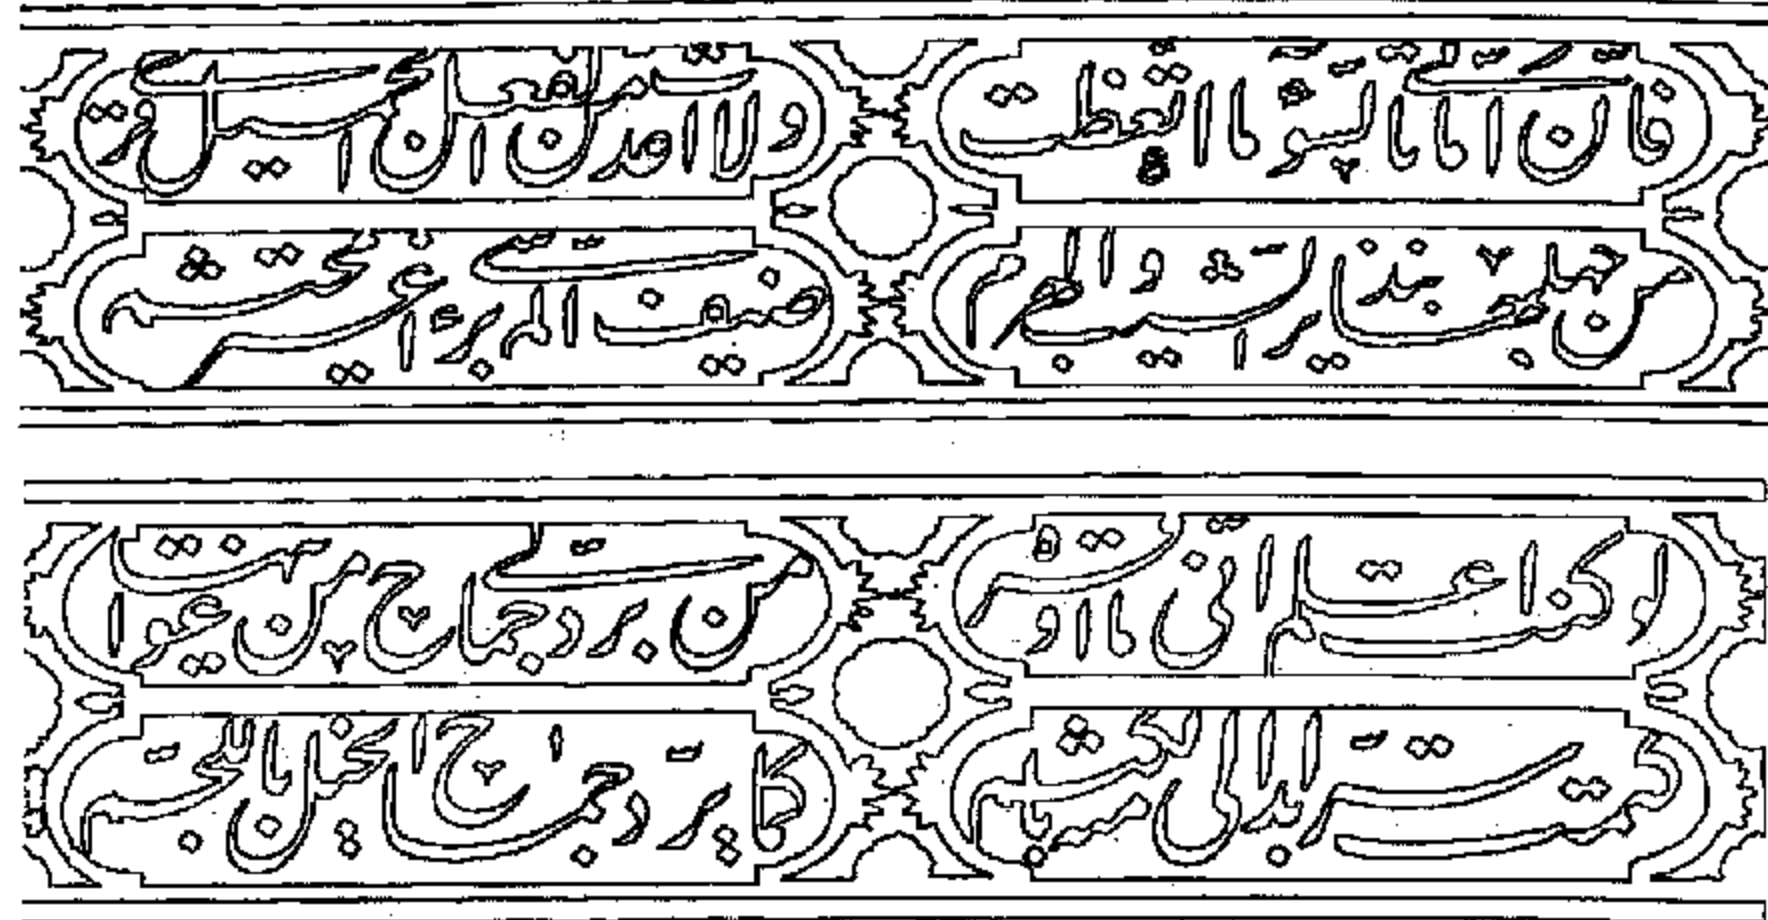 فان امارتي بالسوء ما اتعظت
من جهلها بنذير الشيب والهرم
ولا اعدت من الفعل الجميل قرى
ضيف الم برأسي غير محتشم
لو كنت اعلم اني ما اوقره
كتمت سرا بدا لي منه بالكتم
من لي برد جماح من غوايتها
كما يرد جماح الخيل باللجم